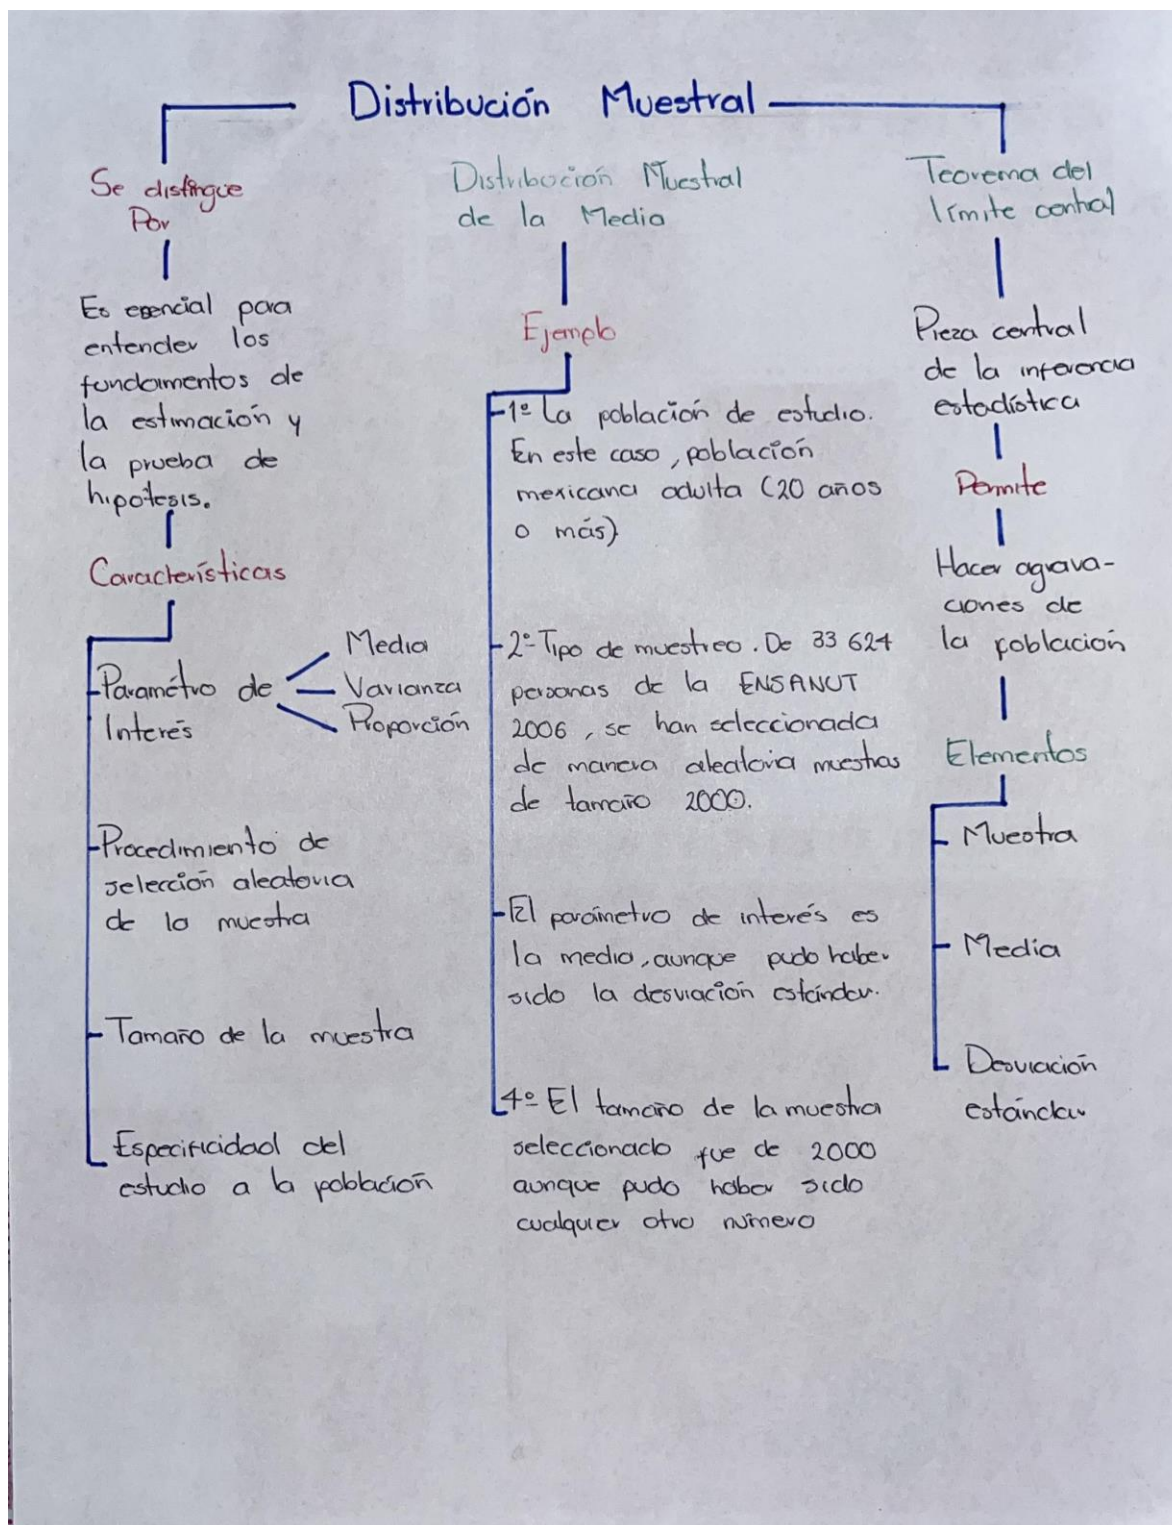 Distribución Muestral
Se distingue
Por
Es esencial para
entender los
fundamentos de
la estimación y
la prueba de
hipótesis.
Características
Paramétro de
Interés
Media
Varianza
Proporción
Procedimiento de
selección aleatoria
de la muestra
Tamaño de la muestra
Especificidad del
estudio a la población
Distribución Muestral
de la Media
Ejemplo
1º La población de estudio.
En este caso, población
mexicana adulta (20 años
o más)
2º Tipo de muestreo. De 33 624
personas de la ENSANUT
2006, se han seleccionada
de manera aleatoria muestras
de tamaño 2000.
El parámetro de interés es
la media, aunque pudo haber
sido la desviación estándar.
4º El tamaño de la muestra
seleccionado fue de 2000
aunque pudo haber sido
cualquier otro número
Teorema del
límite central
Pieza central
de la inferencia
estadística
Permite
Hacer agrava-
ciones de
la población
Elementos
Muestra
Media
Desviación
estándar